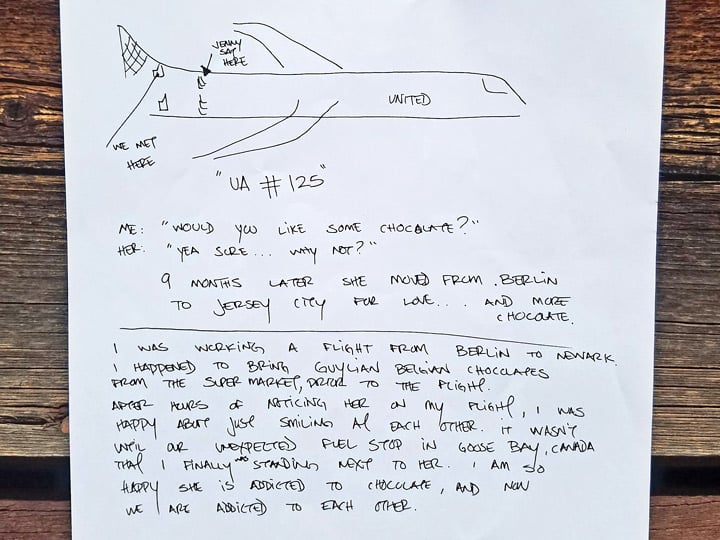 JENNY
SAT
HERE
UNITED
WE MET
HERE
"UA # 125"
ME: "WOULD YOU LIKE SOME CHOCOLATE?"
HER: "YEA SURE... WHY NOT?"
9 MONTHS LATER SHE MOVED FROM BERLIN
TO JERSEY CITY FOR LOVE... AND MORE
CHOCOLATE.
I WAS WORKING A FLIGHT FROM BERLIN TO NEWARK.
I HAPPENED TO BRING GUYLIAN BELGIAN CHOCOLATES
FROM THE SUPER MARKET, PRIOR TO THE FLIGHT.
AFTER HOURS OF NOTICING HER ON MY FLIGHT, I WAS
HAPPY ABOUT JUST SMILING AT EACH OTHER. IT WASN'T
UNTIL OUR UNEXPECTED FUEL STOP IN GOOSE BAY, CANADA
THAT I FINALLY WAS STANDING NEXT TO HER. I AM SO
HAPPY SHE IS ADDICTED TO CHOCOLATE, AND NOW
WE ARE ADDICTED TO EACH OTHER.